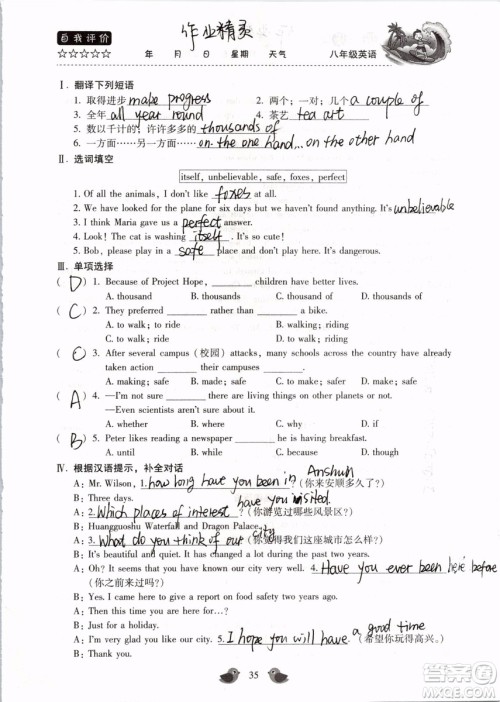 自我评价 作业精灵
☆☆☆☆☆ 年 月 日 星期 天气 八年级英语
Ⅰ. 翻译下列短语
1. 取得进步 make progress 2. 两个;一对;几个 a couple of
3. 全年 all year round 4. 茶艺 tea art
5. 数以千计的;许许多多的 thousands of
6. 一方面……另一方面…… on the one hand... on the other hand
Ⅱ. 选词填空
itself, unbelievable, safe, foxes, perfect
1. Of all the animals, I don't like foxes at all.
2. We have looked for the plane for six days but we haven't found anything. It's unbelievable
3. I think Maria gave us a perfect answer.
4. Look! The cat is washing itself. It's so cute!
5. Bob, please play in a safe place and don't play here.
Ⅲ. 单项选择
( D ) 1. Because of Project Hope, ________ children have better lives.
A. thousand B. thousands C. thousand of D. thousands of
( C ) 2. They preferred ________ rather than ________ a bike.
A. to walk; to ride B. walking; riding
C. to walk; ride D. walking; to ride
( C ) 3. After several campus (校园) attacks, many schools across the country have already
taken action ________ their campuses ________.
A. making; safe B. made; safe C. to make; safe D. make; safer
( A ) 4. —I'm not sure ________ there are living things on other planets or not.
—Even scientists aren't sure about it.
A. whether B. where C. what D. if
( B ) 5. Peter likes reading a newspaper ________ he is having breakfast.
A. until B. while C. because D. though
Ⅳ. 根据汉语提示，补全对话
A: Mr. Wilson, 1. how long have you been in Anshun? (你来安顺多久了?)
B: Three days.
A: 2. Which places of interest have you visited? (你游览过哪些风景区?)
B: Huangguoshu Waterfall and Dragon Palace.
A: 3. What do you think of our city? (你觉得我们这座城市怎么样?)
B: It's beautiful and quiet. It has changed a lot during the past two years.
A: Oh? It seems that you have known our city very well. 4. Have you ever been here before
(你之前来过吗?)
B: Yes. I came here to give a report on food safety two years ago.
A: Then why are you here for this time?
B: Just for a holiday.
A: I'm really glad you like our city. 5. I hope you will have a good time (希望你玩得高兴。)
B: Thank you.
35